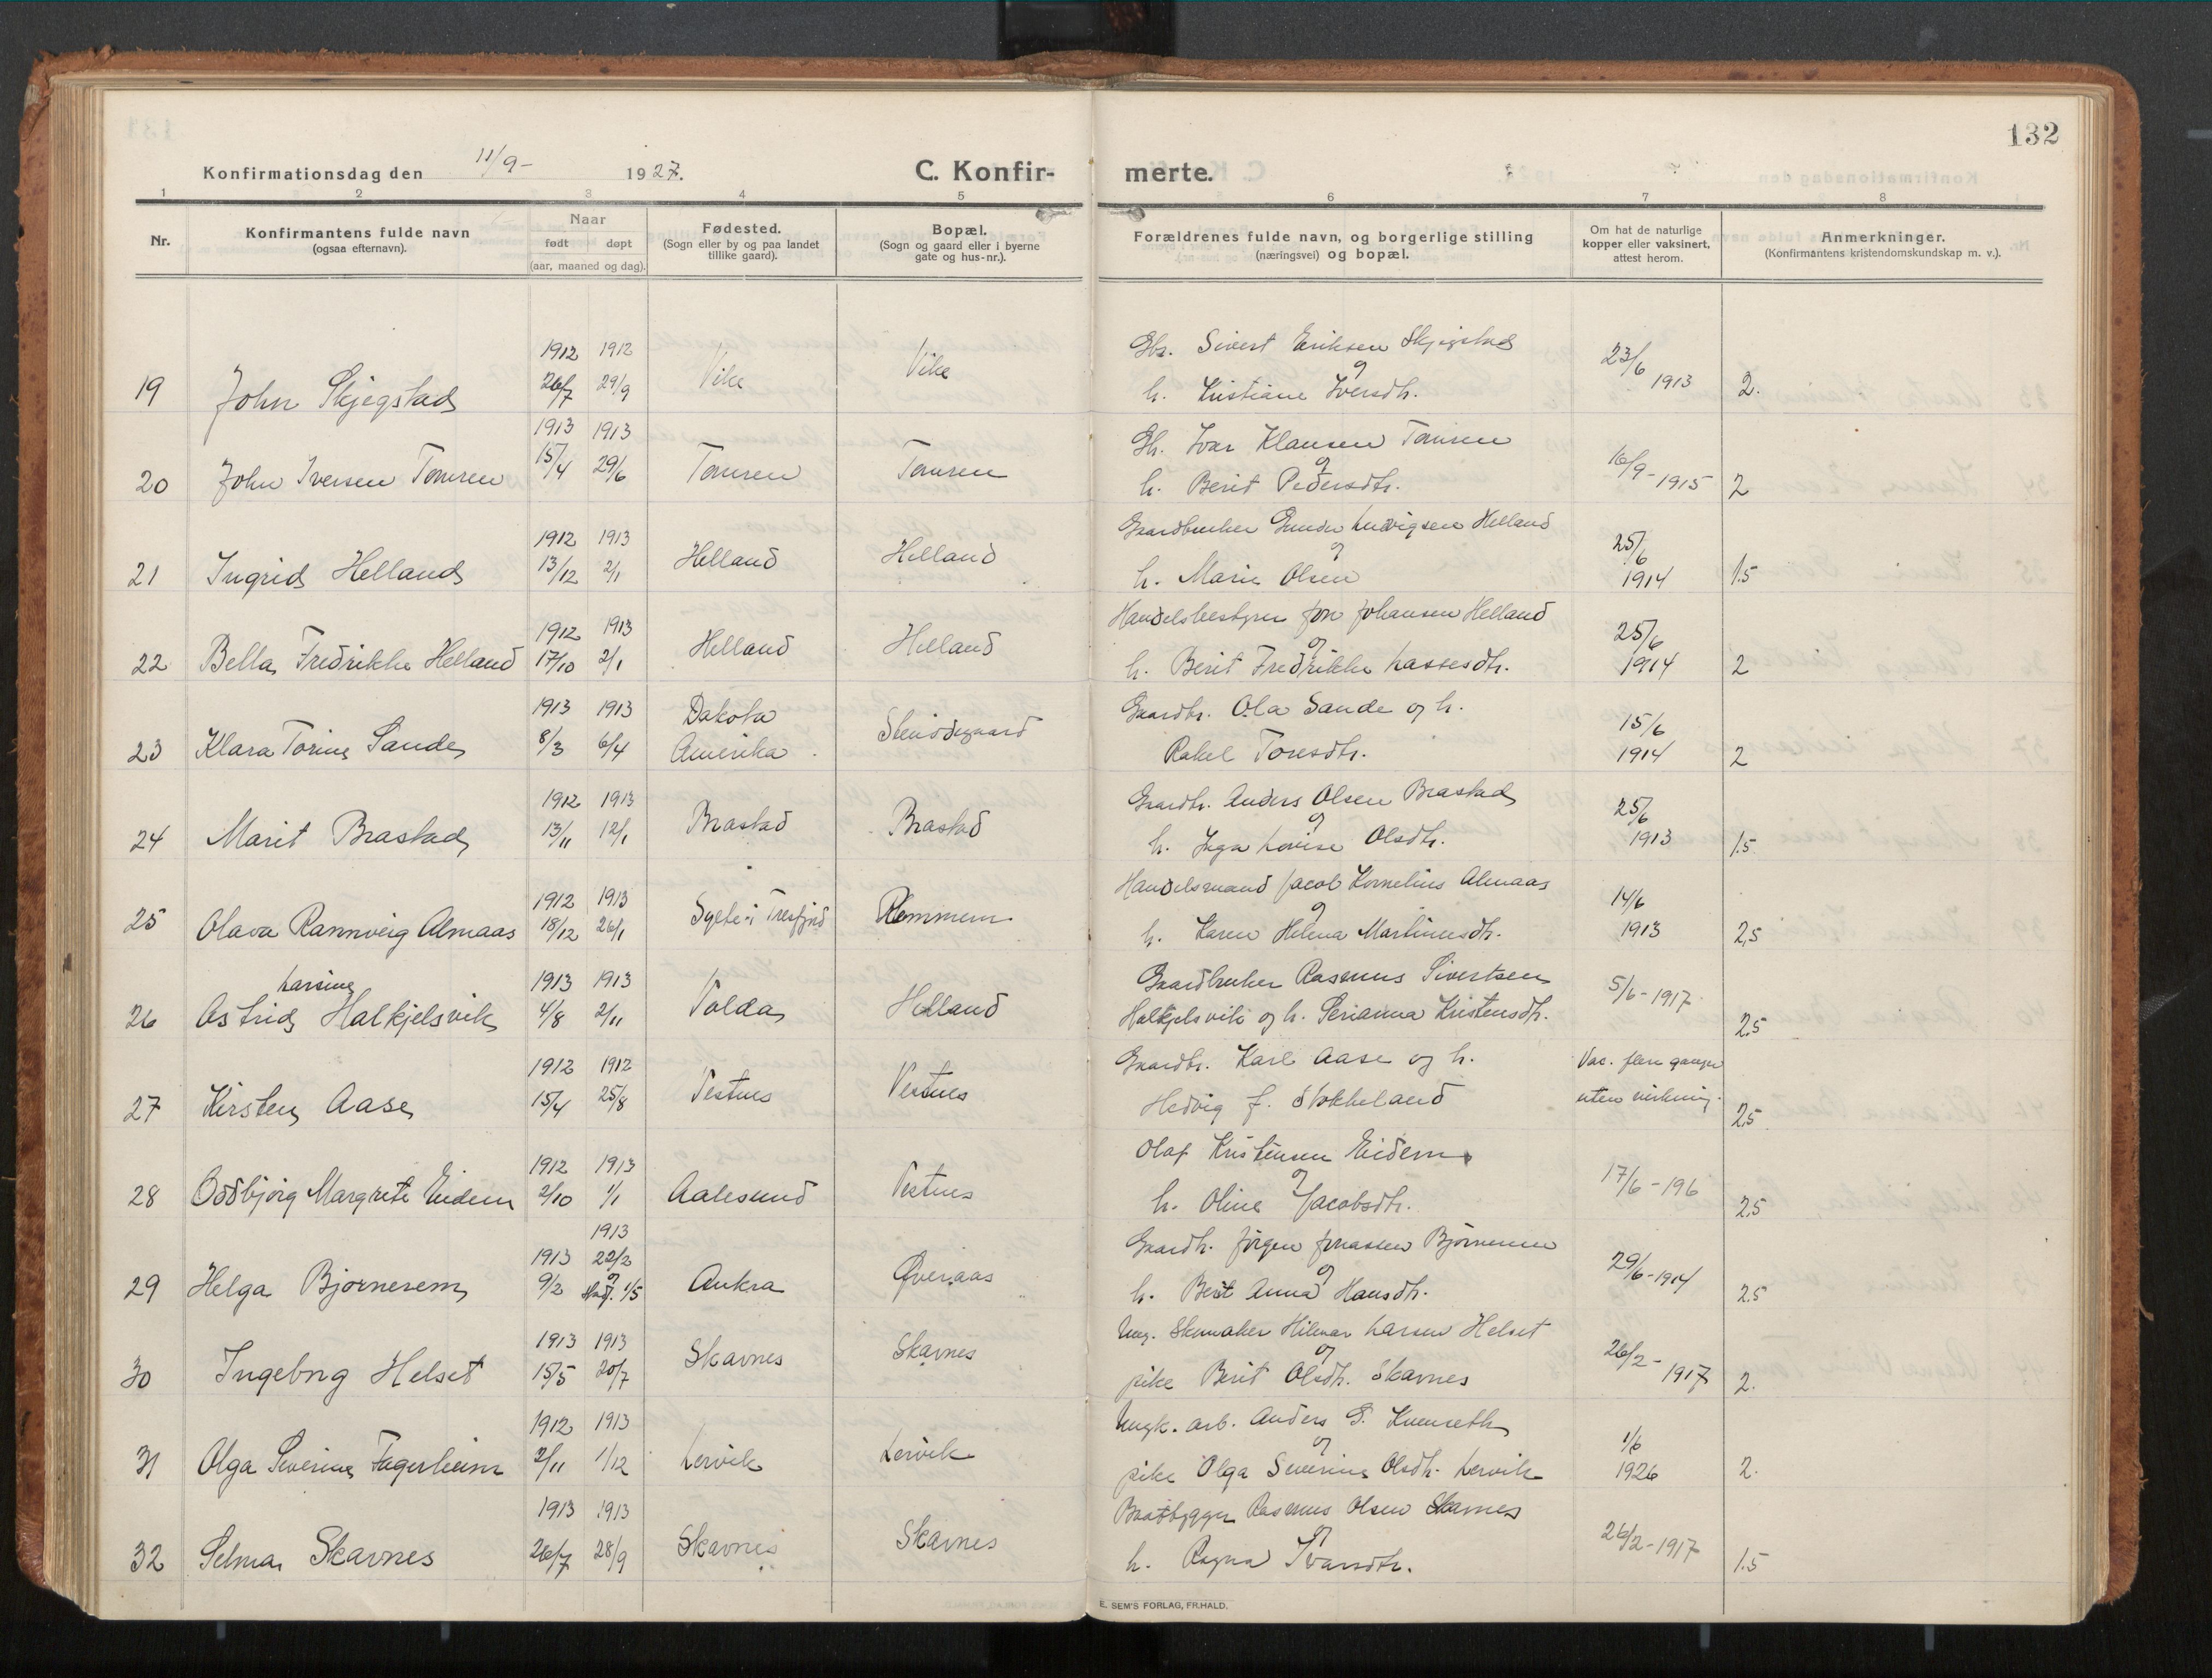 132
Konfirmationsdag den 11/9- 1927. C. Konfir- merte.
1 2 3 4 5 6 7 8
Nr.
Konfirmantens fulde navn
(ogsaa efternavn).
Naar
født døpt
(aar, maaned og dag).
Fødested.
(Sogn eller by og paa landet
tillike gaard).
Bopæl.
(Sogn og gaard eller i byerne
gate og hus-nr.).
Forældrenes fulde navn, og borgerlige stilling
(næringsvei) og bopæl.
Om hat de naturlige
kopper eller vaksinert,
attest herom.
Anmerkninger.
(Konfirmantens kristendomskundskap m. v.).
1912 1912 Gbr. Sivert Eriksen Skjegstad
19 John Skjegstad 26/7 29/9 Vike Vike og 23/6 1913 2.
h. Kristiane Iversdtr.
1913 1913 Gbr. Ivar Klausen Tomren
20 John Iversen Tomren 15/4 29/6 Tomren Tomren og 16/9-1915 2
h. Berit Pedersdtr.
1912 1913 Gaardbruker Gunder Ludvigsen Helland
21 Ingrid Helland 13/12 2/1 Helland Helland og 25/6 1914 1.5
h. Marie Olsen
1912 1913 Handelsbestyrer Jon Johansen Helland
22 Bella Fredrikke Helland 17/10 2/1 Helland Helland og 25/6 1914 2
h. Berit Fredrikke Lassesdtr.
1913 1913 Dakota Gaardbr. Ola Sande og h.
23 Klara Torine Sande 8/3 6/4 Amerika. 15/6 1914 2
Rakel Toresdtr.
1912 1913 Gaardbr. Anders Olsen Brastad
24 Marit Brastad 13/11 12/1 Brastad Brastad og 25/6 1913 1.5
h. Inga Lovise Olsdtr.
1912 1913 Handelsmand Jacob Kornelius Almaas
25 Olava Rannveig Almaas 18/12 26/1 Sylte i Tresfjord Remmem og 14/6 1913 2,5
h. Karen Helena Martinusdtr.
Larsine 1913 1913 Gaardbruker Rasmus Sivertsen
26 Astrid Halkjelsvik 4/8 2/11 Volda Helland 5/6-1917. 2.5
Halkjelsvik og h. Serianna Kristensdtr.
1912 1912 Gaardbr. Karl Aase og h. Vac. flere ganger
27 Kirsten Aase 15/4 25/8 Vestnes Vestnes uten virkning. 2.5
Hedvig f. Stokkeland
1912 1913 Olaf Kristensen Eidem
28 Oddbjørg Margrete Eidem 2/10 1/1 Aalesund Vestnes og 17/6-196 2.5
h. Oline Jacobsdtr.
1913
1913 22/2 Gaardbr. Jørgen Jonassen Bjørnerem
29 Helga Bjørnerem 9/2 og stadf. 1/5 Aukra Øveraas og 29/6-1914 2.5
h. Berit Anna Hansdtr.
1913 1913 Ung. Skomaker Hilmar Larsen Helset
30 Ingeborg Helset 15/5 20/7 Skavnes Skavnes og 26/2-1917 2.
pike Berit Olsdtr. Skavnes
1912 1913 Ungk. arb. Anders
31 Olga Severine Fagerheim 2/11 1/12 Lervik Lervik og 1/6 1926 2.
pike Olga Severine Olsdtr. Lervik
1913 1913 Baatbygger Rasmus Olsen Skavnes
32 Selma Skavnes 26/7 28/9 Skavnes Skavnes og 26/2-1917 1.5
h. Ragna Ivarsdtr.
E. SEM'S FORLAG, FR.HALD.